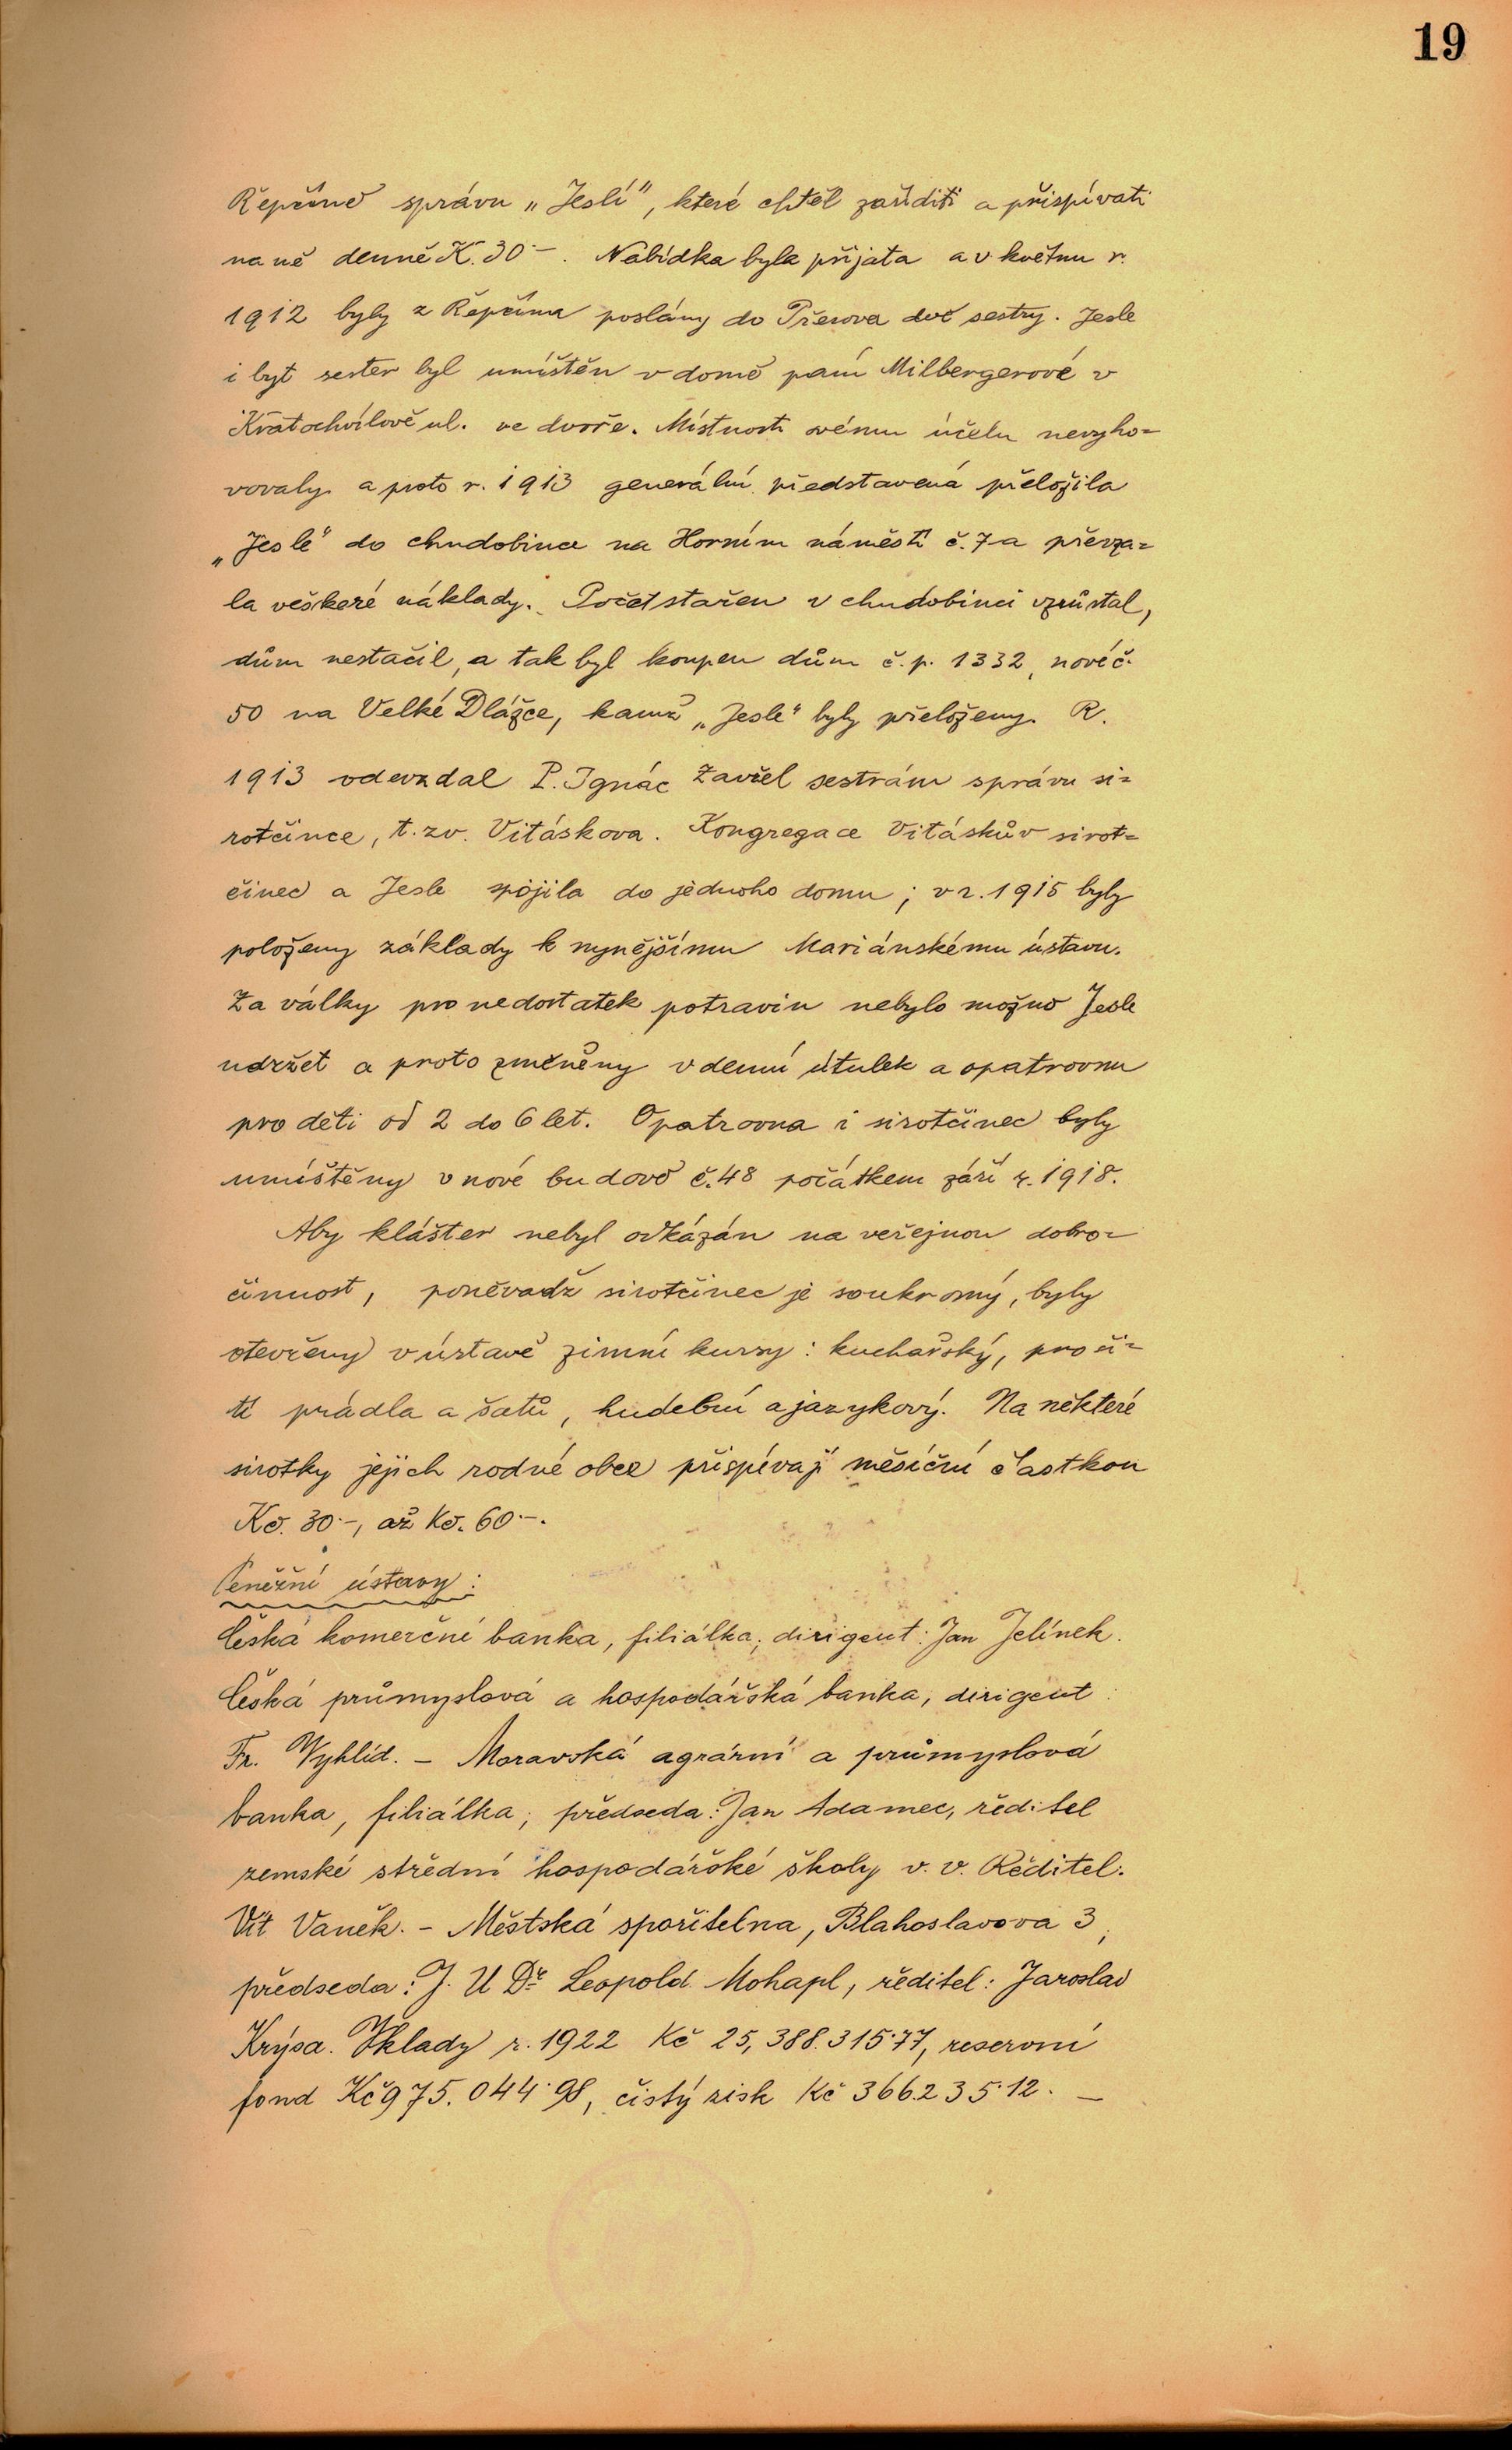 19
Řepčíně správu „Jeslí", které chtěl zaříditi a přispívati
na ně denně K. 30·–. Nabídka byla přijata a v květnu r.
1912 byly z Řepčína poslány do Přerova dvě sestry. Jesle
i byt sester byl umístěn v domě paní Milbergerové v
Kratochvílově ul. ve dvoře. Místnosti svému účelu nevyho=
vovaly a proto r. 1913 generální představená přeložila
„Jesle" do chudobince na Horním náměstí č. 7 a převza=
la veškeré náklady. Počet stařen v chudobinci vzrůstal,
dům nestačil, a tak byl koupen dům č.p. 1332, nové č.
50 na Velké Dlážce, kamž „Jesle" byly přeloženy. R.
1913 odevzdal P. Ignác Zavřel sestrám správu si=
rotčince, t. zv. Vitáskova. Kongregace Vitáskův sirot=
činec a Jesle spojila do jednoho domu; v r. 1915 byly
položeny základy k nynějšímu Mariánskému ústavu.
Za války pro nedostatek potravin nebylo možno Jesle
udržet a proto změněny v denní útulek a opatrovnu
pro děti od 2 do 6 let. Opatrovna i sirotčinec byly
umístěny v nové budově č. 48 počátkem září r. 1918.
Aby klášter nebyl odkázán na veřejnou dobro=
činnost, poněvadž sirotčinec je soukromý, byly
otevřeny v ústavě zimní kursy: kuchařský, pro ši=
tí prádla a šatů, hudební a jazykový. Na některé
sirotky jejich rodné obce přispívají měsíční částkou
Kč. 30·–, až Kč. 60·–.
Peněžní ústavy:
Česká komerční banka, filiálka; dirigent: Jan Jelínek.
Česká průmyslová a hospodářská banka, dirigent:
Fr. Vyhlíd. – Moravská agrární a průmyslová
banka, filiálka; předseda: Jan Adamec, ředitel
zemské střední hospodářské školy v. v. Ředitel:
Vít Vaněk. – Městská spořitelna, Blahoslavova 3,
předseda: J. U Dr. Leopold Mohapl, ředitel: Jaroslav
Krýsa. Vklady r. 1922 Kč 25,388.315·77, reservní
fond Kč 975.044·98, čistý zisk Kč 366.235·12. –